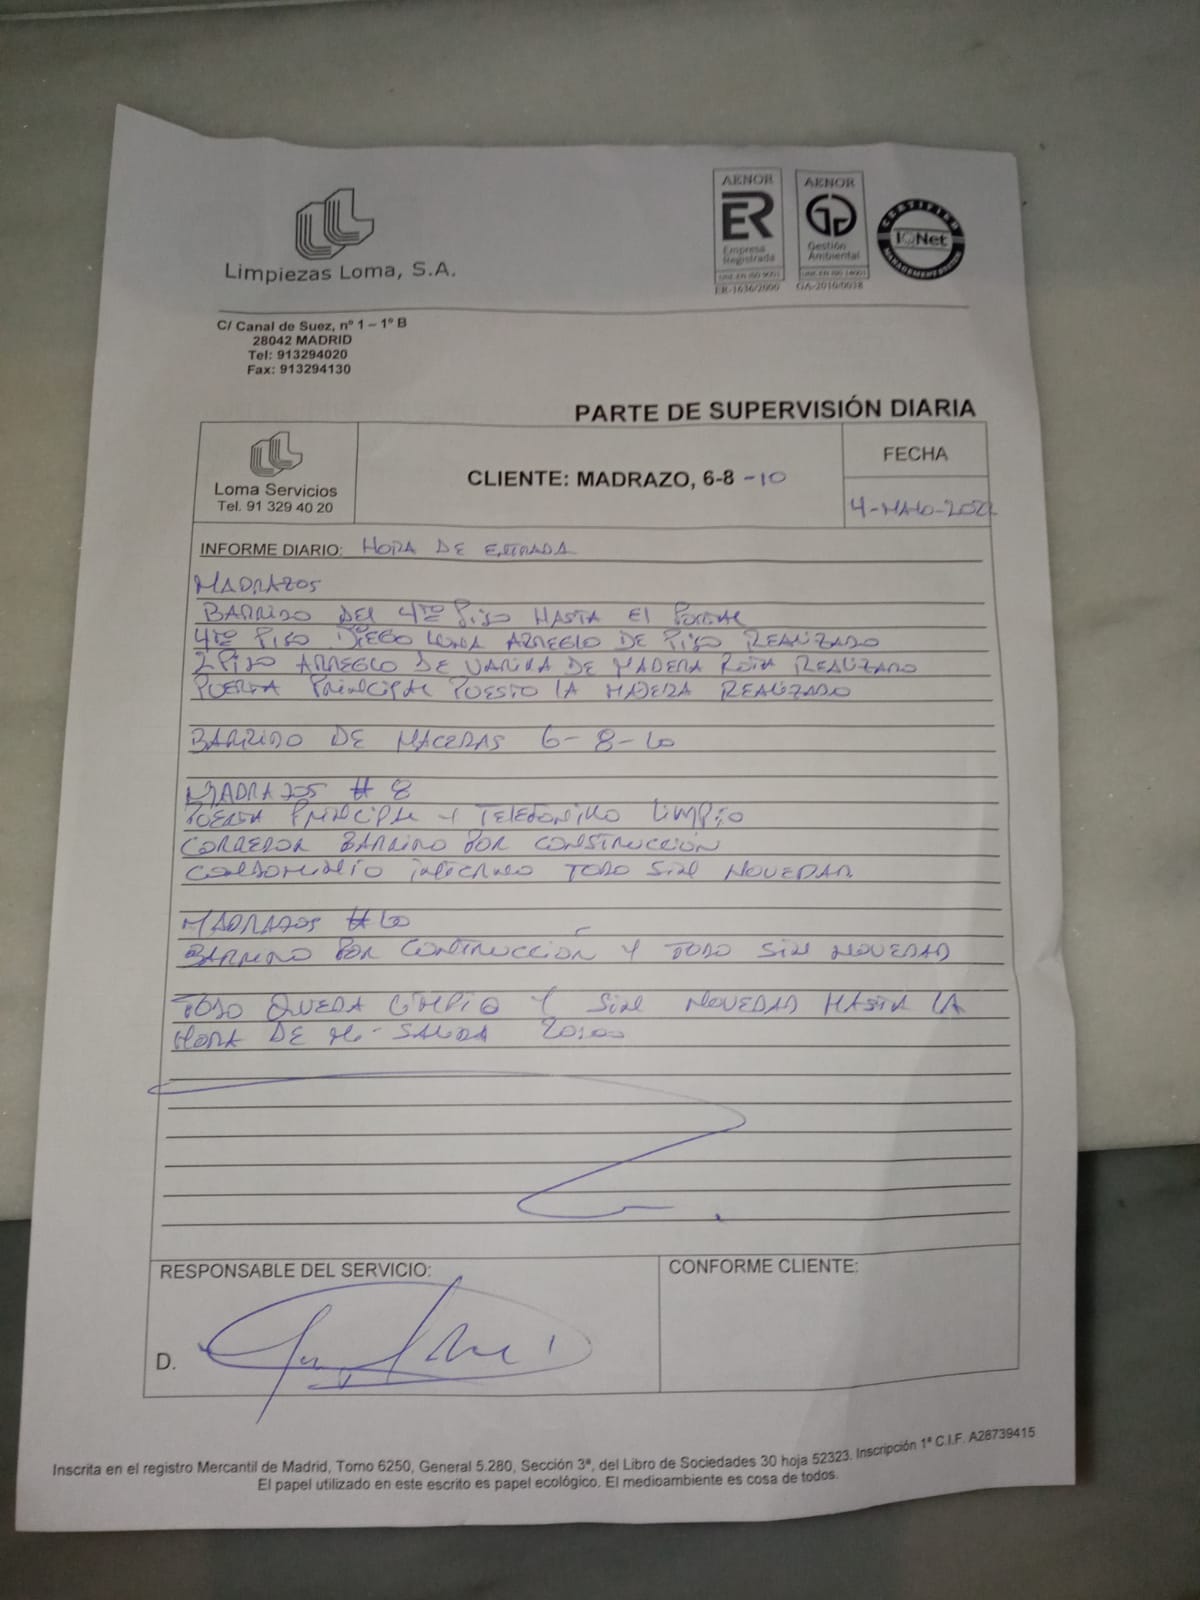 Limpiezas Loma, S.A.
AENOR
ER
Empresa
Registrada
UNE-EN ISO 9001
ER-1636/2000
AENOR
Gestión
Ambiental
UNE-EN ISO 14001
GA-2010/0038
CERTIFIED
IQNet
MANAGEMENT SYSTEM
C/ Canal de Suez, nº 1 – 1º B
28042 MADRID
Tel: 913294020
Fax: 913294130
PARTE DE SUPERVISIÓN DIARIA
Loma Servicios
Tel. 91 329 40 20
CLIENTE: MADRAZO, 6-8 -10
FECHA
4-MAYO-202
INFORME DIARIO: HORA DE ENTRADA
MADRAZOS
BARRIDO DEL 4TO PISO HASTA EL PORTAL
4TO PISO DIEGO ARREGLO DE PISO REALIZADO
2 PISO ARREGLO DE VARILLA DE MADERA ROTA REALIZADO
PUERTA PRINCIPAL PUESTO LA MADERA REALIZADO
BARRIDO DE MACERAS 6-8-10
MADRAZOS # 8
PUERTA PRINCIPAL Y TELEFONILLO LIMPIO
CORREDOR BARRIDO POR CONSTRUCCIÓN
CONDOMINIO INTERNO TODO SIN NOVEDAD
MADRAZOS #10
BARRIDO POR CONSTRUCCIÓN Y TODO SIN NOVEDAD
TODO QUEDA LIMPIO Y SIN NOVEDAD HASTA LA
HORA DE MI SALIDA 20:00
RESPONSABLE DEL SERVICIO:
CONFORME CLIENTE:
D.
Inscrita en el registro Mercantil de Madrid, Tomo 6250, General 5.280, Sección 3ª, del Libro de Sociedades 30 hoja 52323. Inscripción 1ª C.I.F. A28739415
El papel utilizado en este escrito es papel ecológico. El medioambiente es cosa de todos.